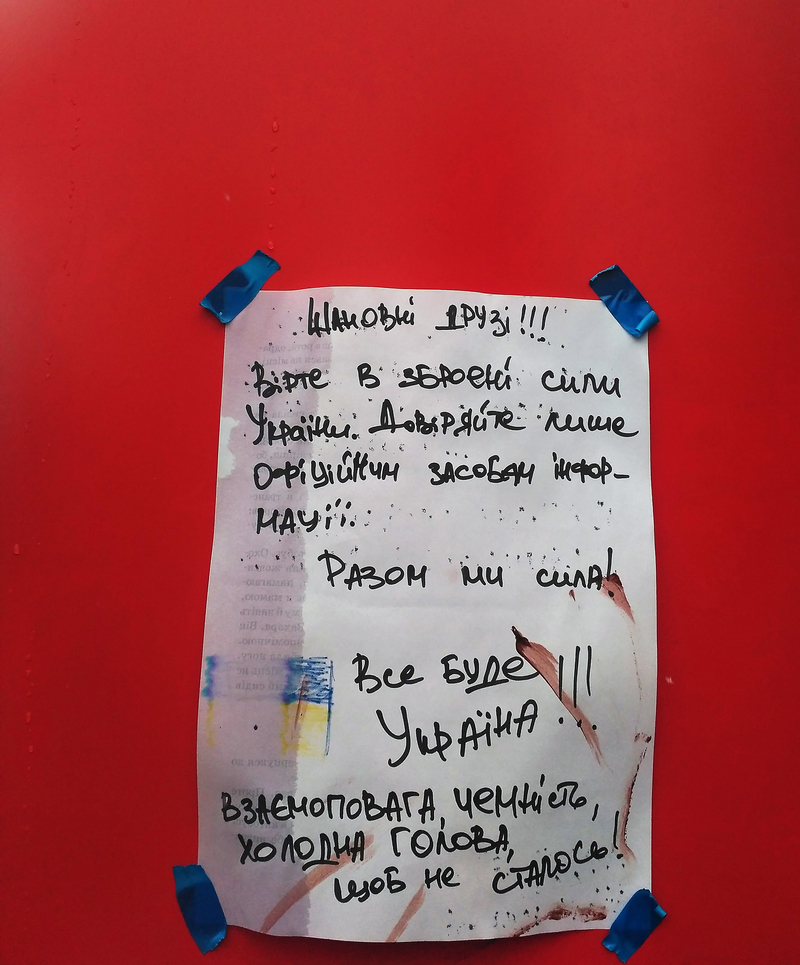 Шановні друзі!!!
Вірте в збройні сили
України. Довіряйте лише
офіційним засобам інфор-
мації.
Разом ми сила!
Все буде
Україна!!!
Взаємоповага, чемність,
холодна голова,
щоб не сталось!